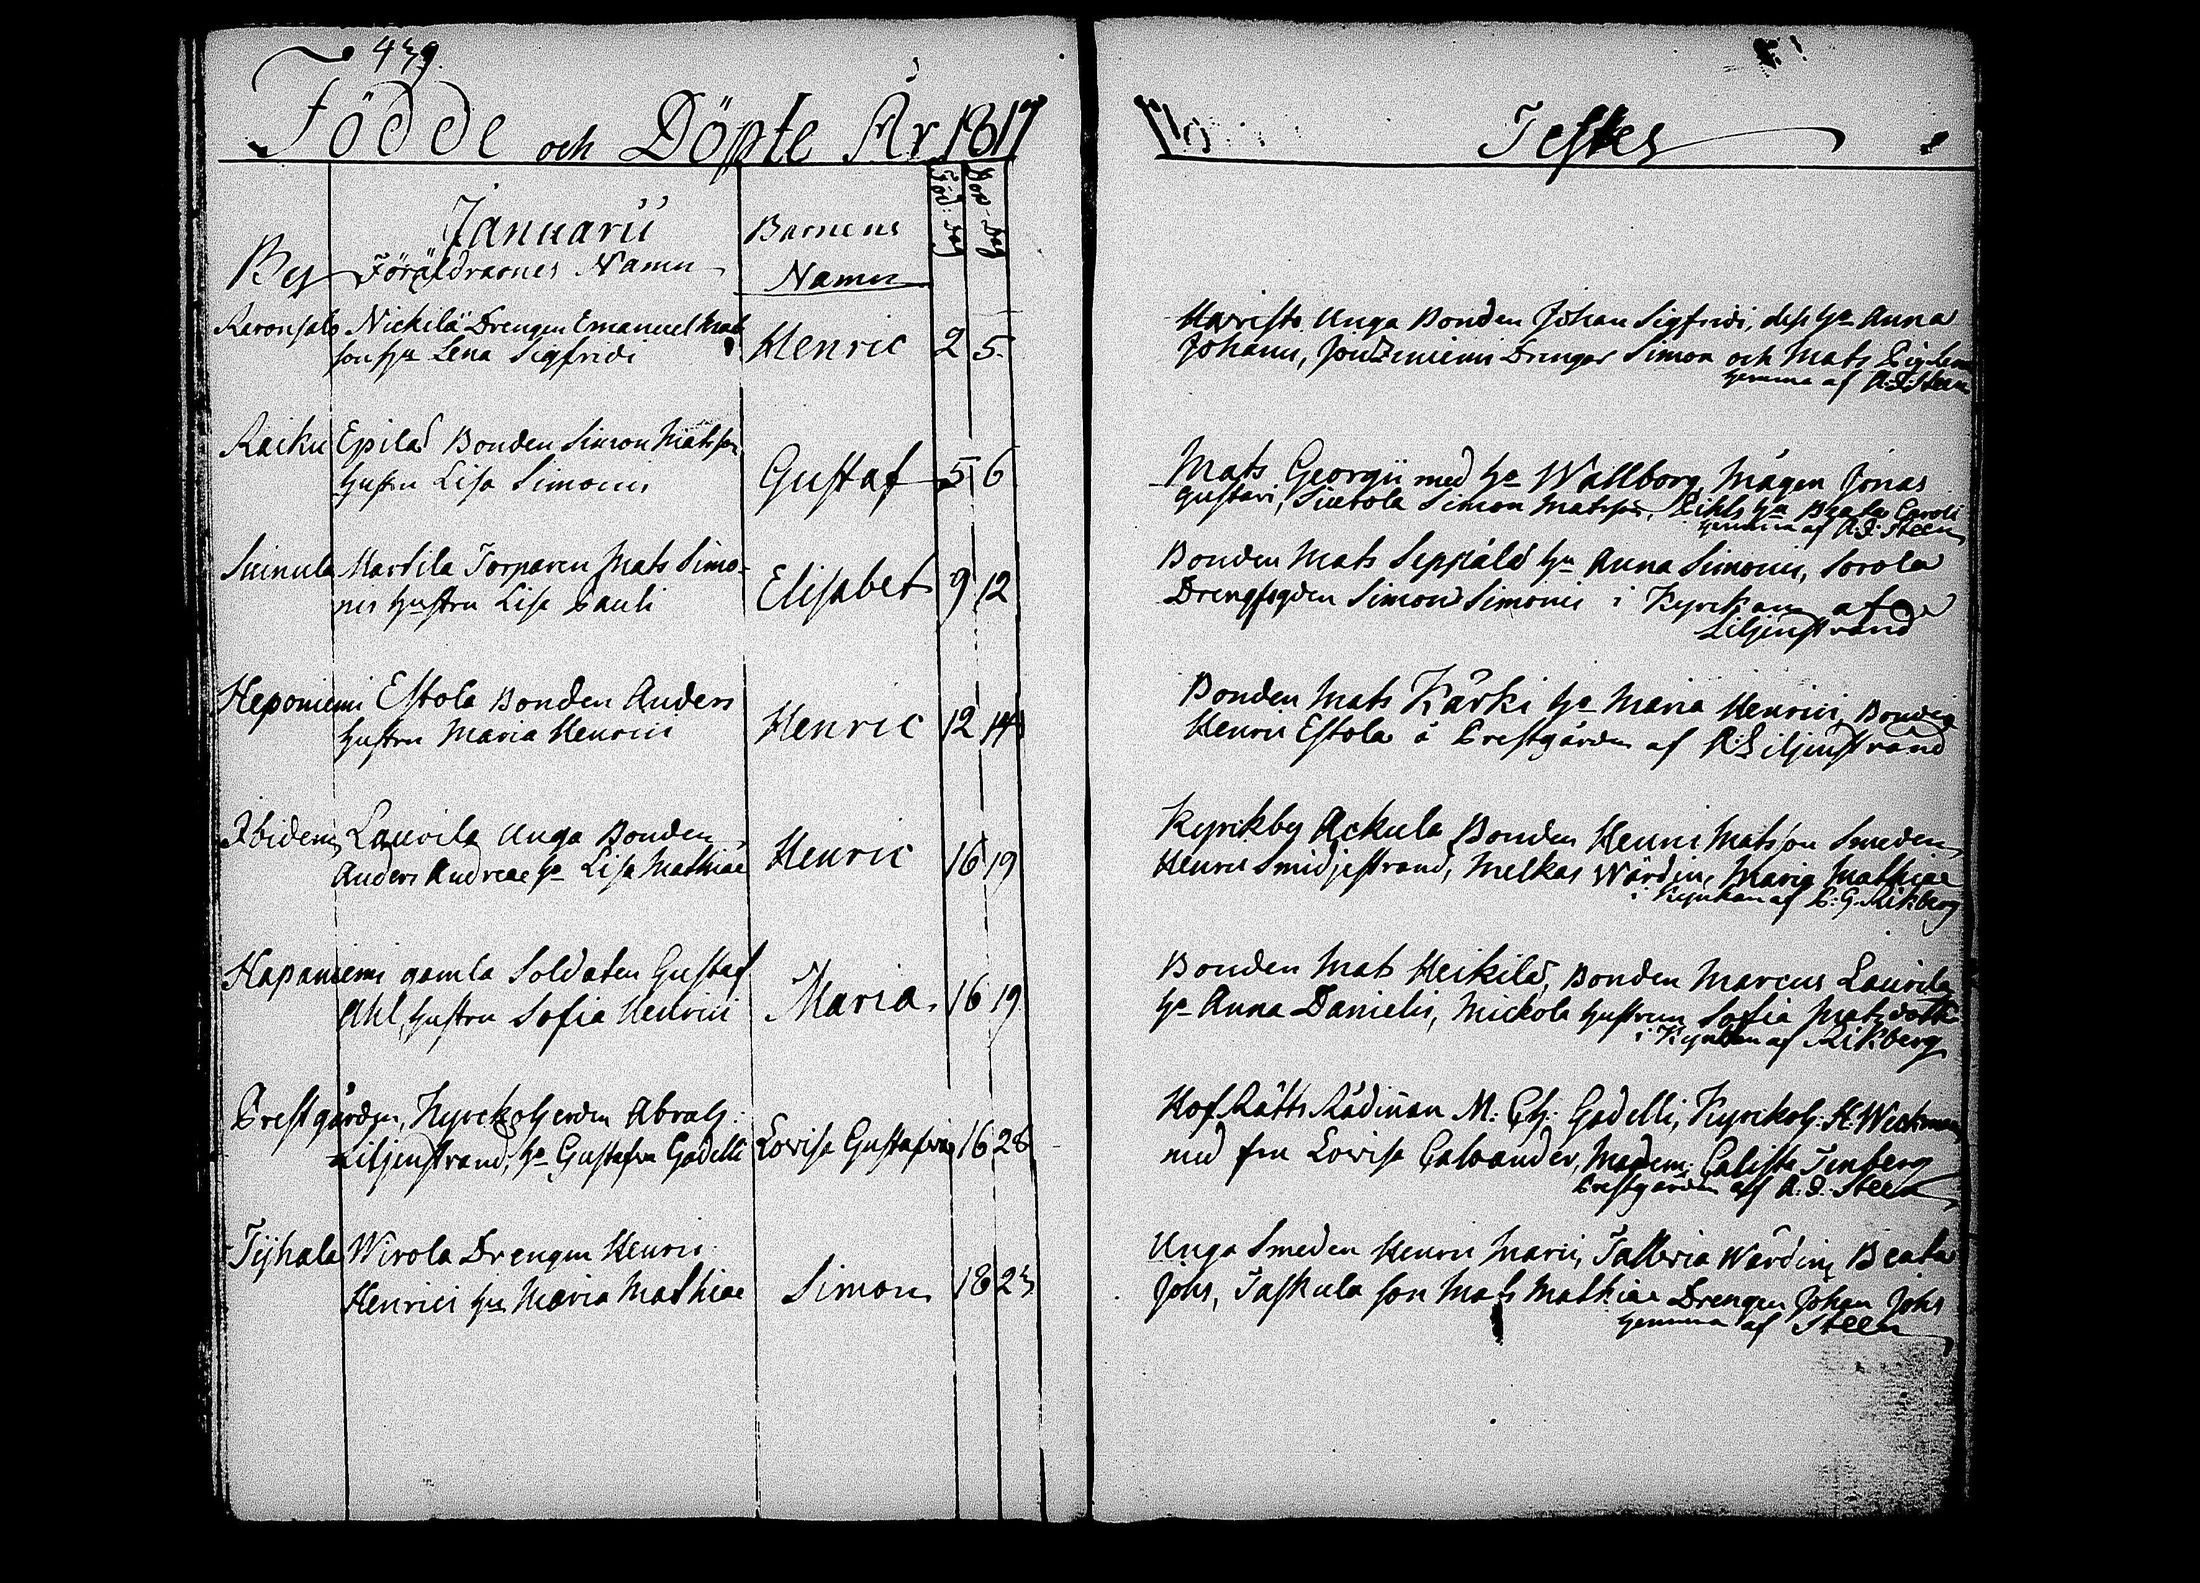 439.
Födde och Döpte År 1817
Januarii
By Föräldrarnes Namn
Barnens
Namn
Föd: dag
Dop-dag
Nickilä Drengen Emanuel Mats
son hu Lena Sigfridi
Henric 2 5.
Raiku Epilä Bonden Simon Matsson
hustru Lisa Simonis
Gustaf 5 6
Suinula Martila Torparen Mats Simo-
nis hustru Lisa Pauli
Elisabet 9 12
Heponiemi Estola Bonden Anders
hustru Maria Henrici
Henric 12 14
Ibidem Laurila Unga Bonden
Anders Andreae ha Lisa Mathiae
Henric 16 19
Hapaniemi gamla Soldaten Gustaf
Ahl, hustru Sofia Henrici
Maria. 16 19
Prestgården, Kyrckoherden Abrah:
Liljenstrand, ha Gustafva Gadelli
Lovisa Gustafva 16 28
Tyhala Wirola Drengen Henric
Henrici hu Maria Mathiae
Simon 18 23
Testes
Unga Bonden Johan Sigfridi, dess ha Anna
Johanis, Drengar Simon och Mats
hemma af A.J. Steen
Mats Georgii med ha Wallborg, Mågen Jonas
Gustavi, Simon Matsson, ha Beata Caroli
hemma af A.J. Steen
Bonden Mats Seppälä hu Anna Simonis, Sorola
Drengfogden Simon Simonis i Kyrkan af
Liljenstrand
Bonden Mats Kärki ha Maria Henrici, Bonden
Henric Estola å Prestgården af A. Liljenstrand
Kyrkby Ackula Bonden Henric Matsson Smeden
Henric Smidjestrand, Melkas Wärdin, Maria Mathiae
i Kyrkan af C. G. Rikberg
Bonden Mats Heikilä, Bonden Marcus Laurila
ha Anna Danielis, Mickola hustrun Sofia Matsdotter
i Kyrkan af Rikberg
Hof Rätts Rådinnan M: Ch: Gadelli, Kyrkoh: H. Weckman
med fru Lovisa Calvander, Madem: Calista Tenberg
Prestgården af A. J. Steen
Unga Smeden Henric Marci, Wärdin, Beata
Johs, Taskula son Mats Mathiae Drengen Johan Johs
hemma af Steen